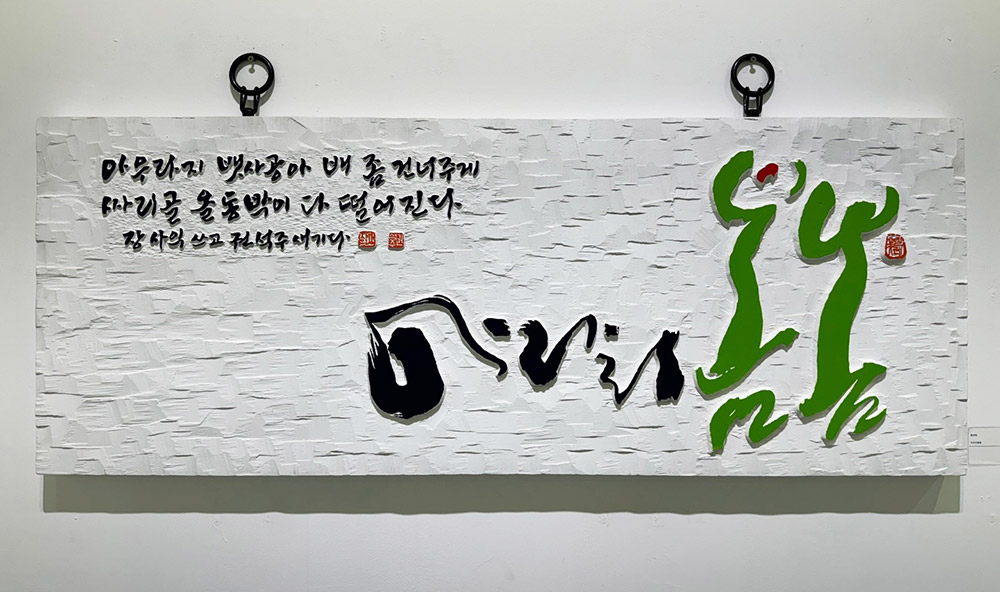 아우라지 뱃사공아 배 좀 건너주게
싸리골 올동박이 다 떨어진다.
장 사익 쓰고 새기다.
아라리